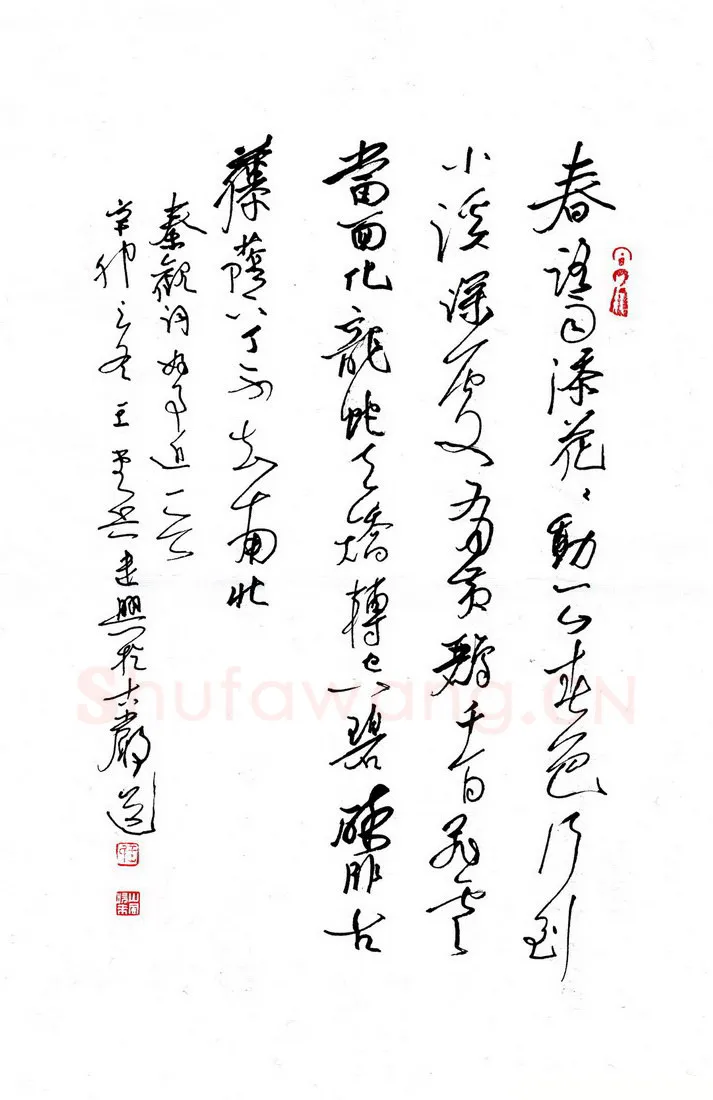 春路雨添花〻動一山春色行到
小溪深處有黃鸝千百飛雲
當面化龍蛇夭矯轉空碧醉臥古
藤蔭下了不知南北
秦觀詞好事近一首
辛卯之冬王建興於古嚴道
Shufawang.CN